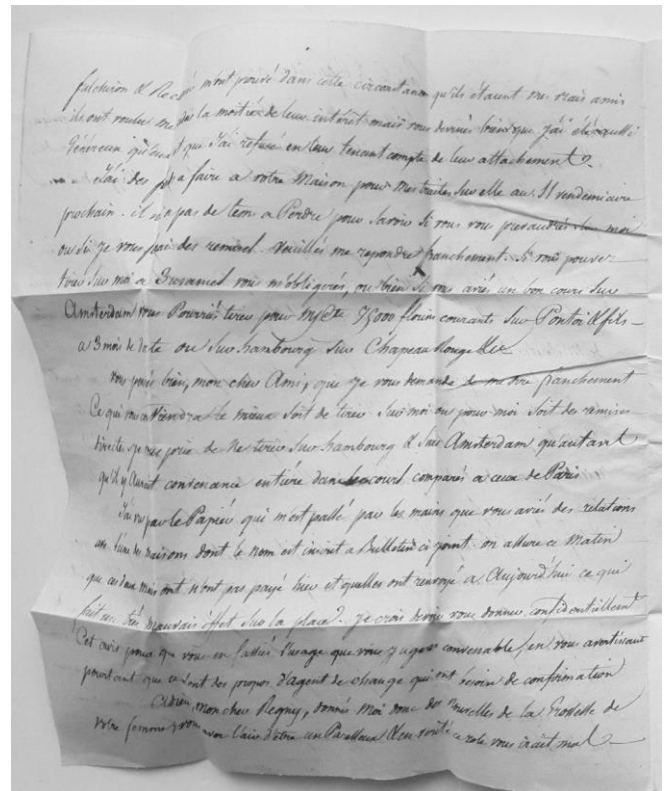 fulchiron & m'ont prouvé dans cette circonstance qu'ils étaient mes vrais amis
ils ont voulu me la moitié de leur intérêt mais vous devinés bien que j'ai été aussi
Généreux qu'eux & que J'ai refusé en leur tenant compte de leur attachement.
J'ai des a faire a votre Maison pour mes traites sur elle au 11 vendemiaire
prochain. il n'a pas de tems a Perdre pour Savoir Si vous vous prevaudrés sur moi
ou Si je vous des remises. Veuillés me repondre franchement. Si vous pouvez
tirer Sur moi a 3 vous m'obligerés, ou bien Si vous aviés un bon cours Sur
Amsterdam vous Pourriés tirer pour m/Cte 75000 florins courants Sur & fils
a 3 mois de date ou Sur hambourg Sur Chapeau Rouge
vous bien, mon cher Ami, que je vous demande de me dire franchement
Ce qui vous conviendra le mieux Soit de tirer Sur moi ou pour moi Soit des remises
directes, je vous prie de Ne tirer Sur hambourg & Sur Amsterdam qu'autant
qu'il y Auroit convenance entière dans les cours comparés a ceux de Paris
J'ai vu par le Papier qui m'est passé par les mains que vous aviés des relations
maisons dont le nom est inscrit a Bulletin ci joint on assure ce Matin
que ces deux n'ont pas payé hier et qu'elles ont renvoyé a Aujourd'hui ce qui
fait un très mauvais effet Sur la place. je crois devoir vous donner confidentiellement
Cet avis pour que vous en fassiés l'usage que vous jugerés convenable, en vous avertissant
pourtant que ce Sont des propos d'agent de change qui ont besoin de confirmation
Adieu, mon cher Regny, donnés Moi donc des nouvelles de la Grossesse de
votre femme, vous avez l'air d'être un Paresseux & en vérité ce role vous irait mal